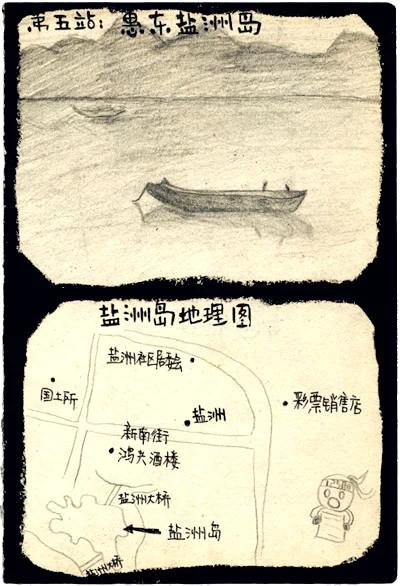 第五站：惠东盐洲岛
盐洲岛地理图
盐洲社区居委会
国土所
盐洲
彩票销售店
新南街
鸿兴酒楼
盐洲大桥
盐洲岛
盐洲大桥